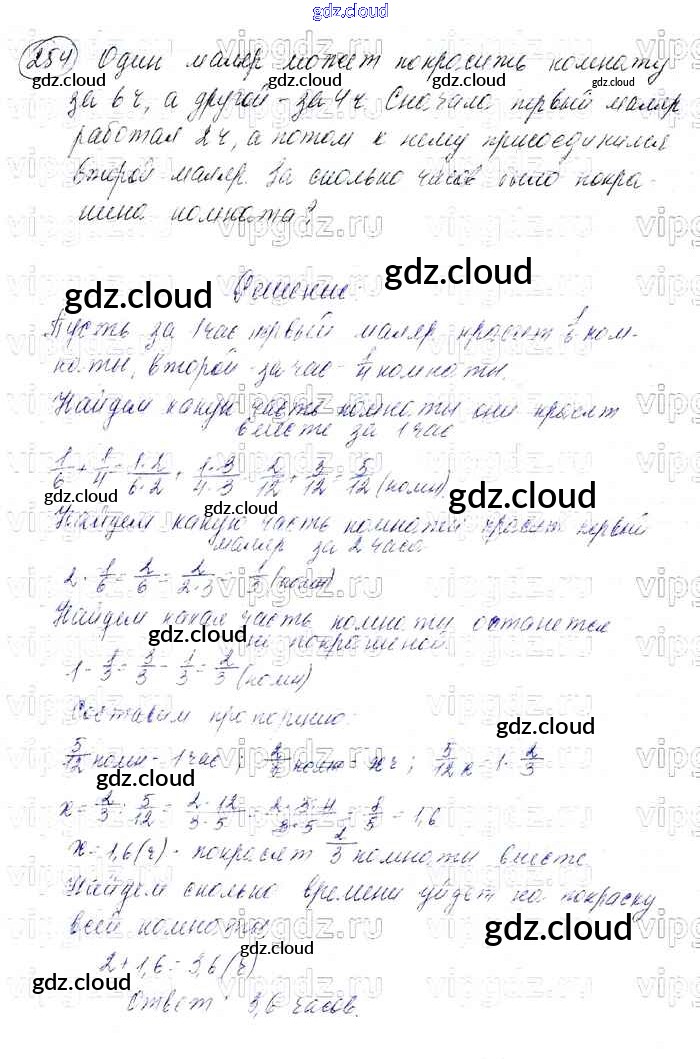 gdz.cloud
254 Один маляр может покрасить комнату
за 6ч, а другой - за 4ч. Сначала первый маляр
работал 2ч, а потом к нему присоединился
второй маляр. За сколько часов была покра-
шена комната?
Решение.
Пусть за 1 час первый маляр красит 1/6 ком-
наты, второй - за час - 1/4 комнаты.
Найдем какую часть комнаты они красят
вместе за 1 час
1/6 + 1/4 = 1·2/6·2 + 1·3/4·3 = 2/12 + 3/12 = 5/12 (комн)
Найдем какую часть комнаты красит первый
маляр за 2 часа
2 · 1/6 = 2/6 = 2/2·3 = 1/3 (комн)
Найдем какая часть комнаты останется
не покрашеной.
1 - 1/3 = 3/3 - 1/3 = 2/3 (комн)
Составим пропорцию:
5/12 комн - 1 час ; 2/3 комн - x ч ; 5/12 x = 1 · 2/3
x = 2/3 : 5/12 = 2·12/3·5 = 2·3·4/3·5 = 8/5 = 1,6
x = 1,6 (ч) - покрасят 2/3 комнаты вместе.
Найдем сколько времени уйдет на покраску
всей комнаты
2 + 1,6 = 3,6 (ч)
Ответ : 3,6 часов.